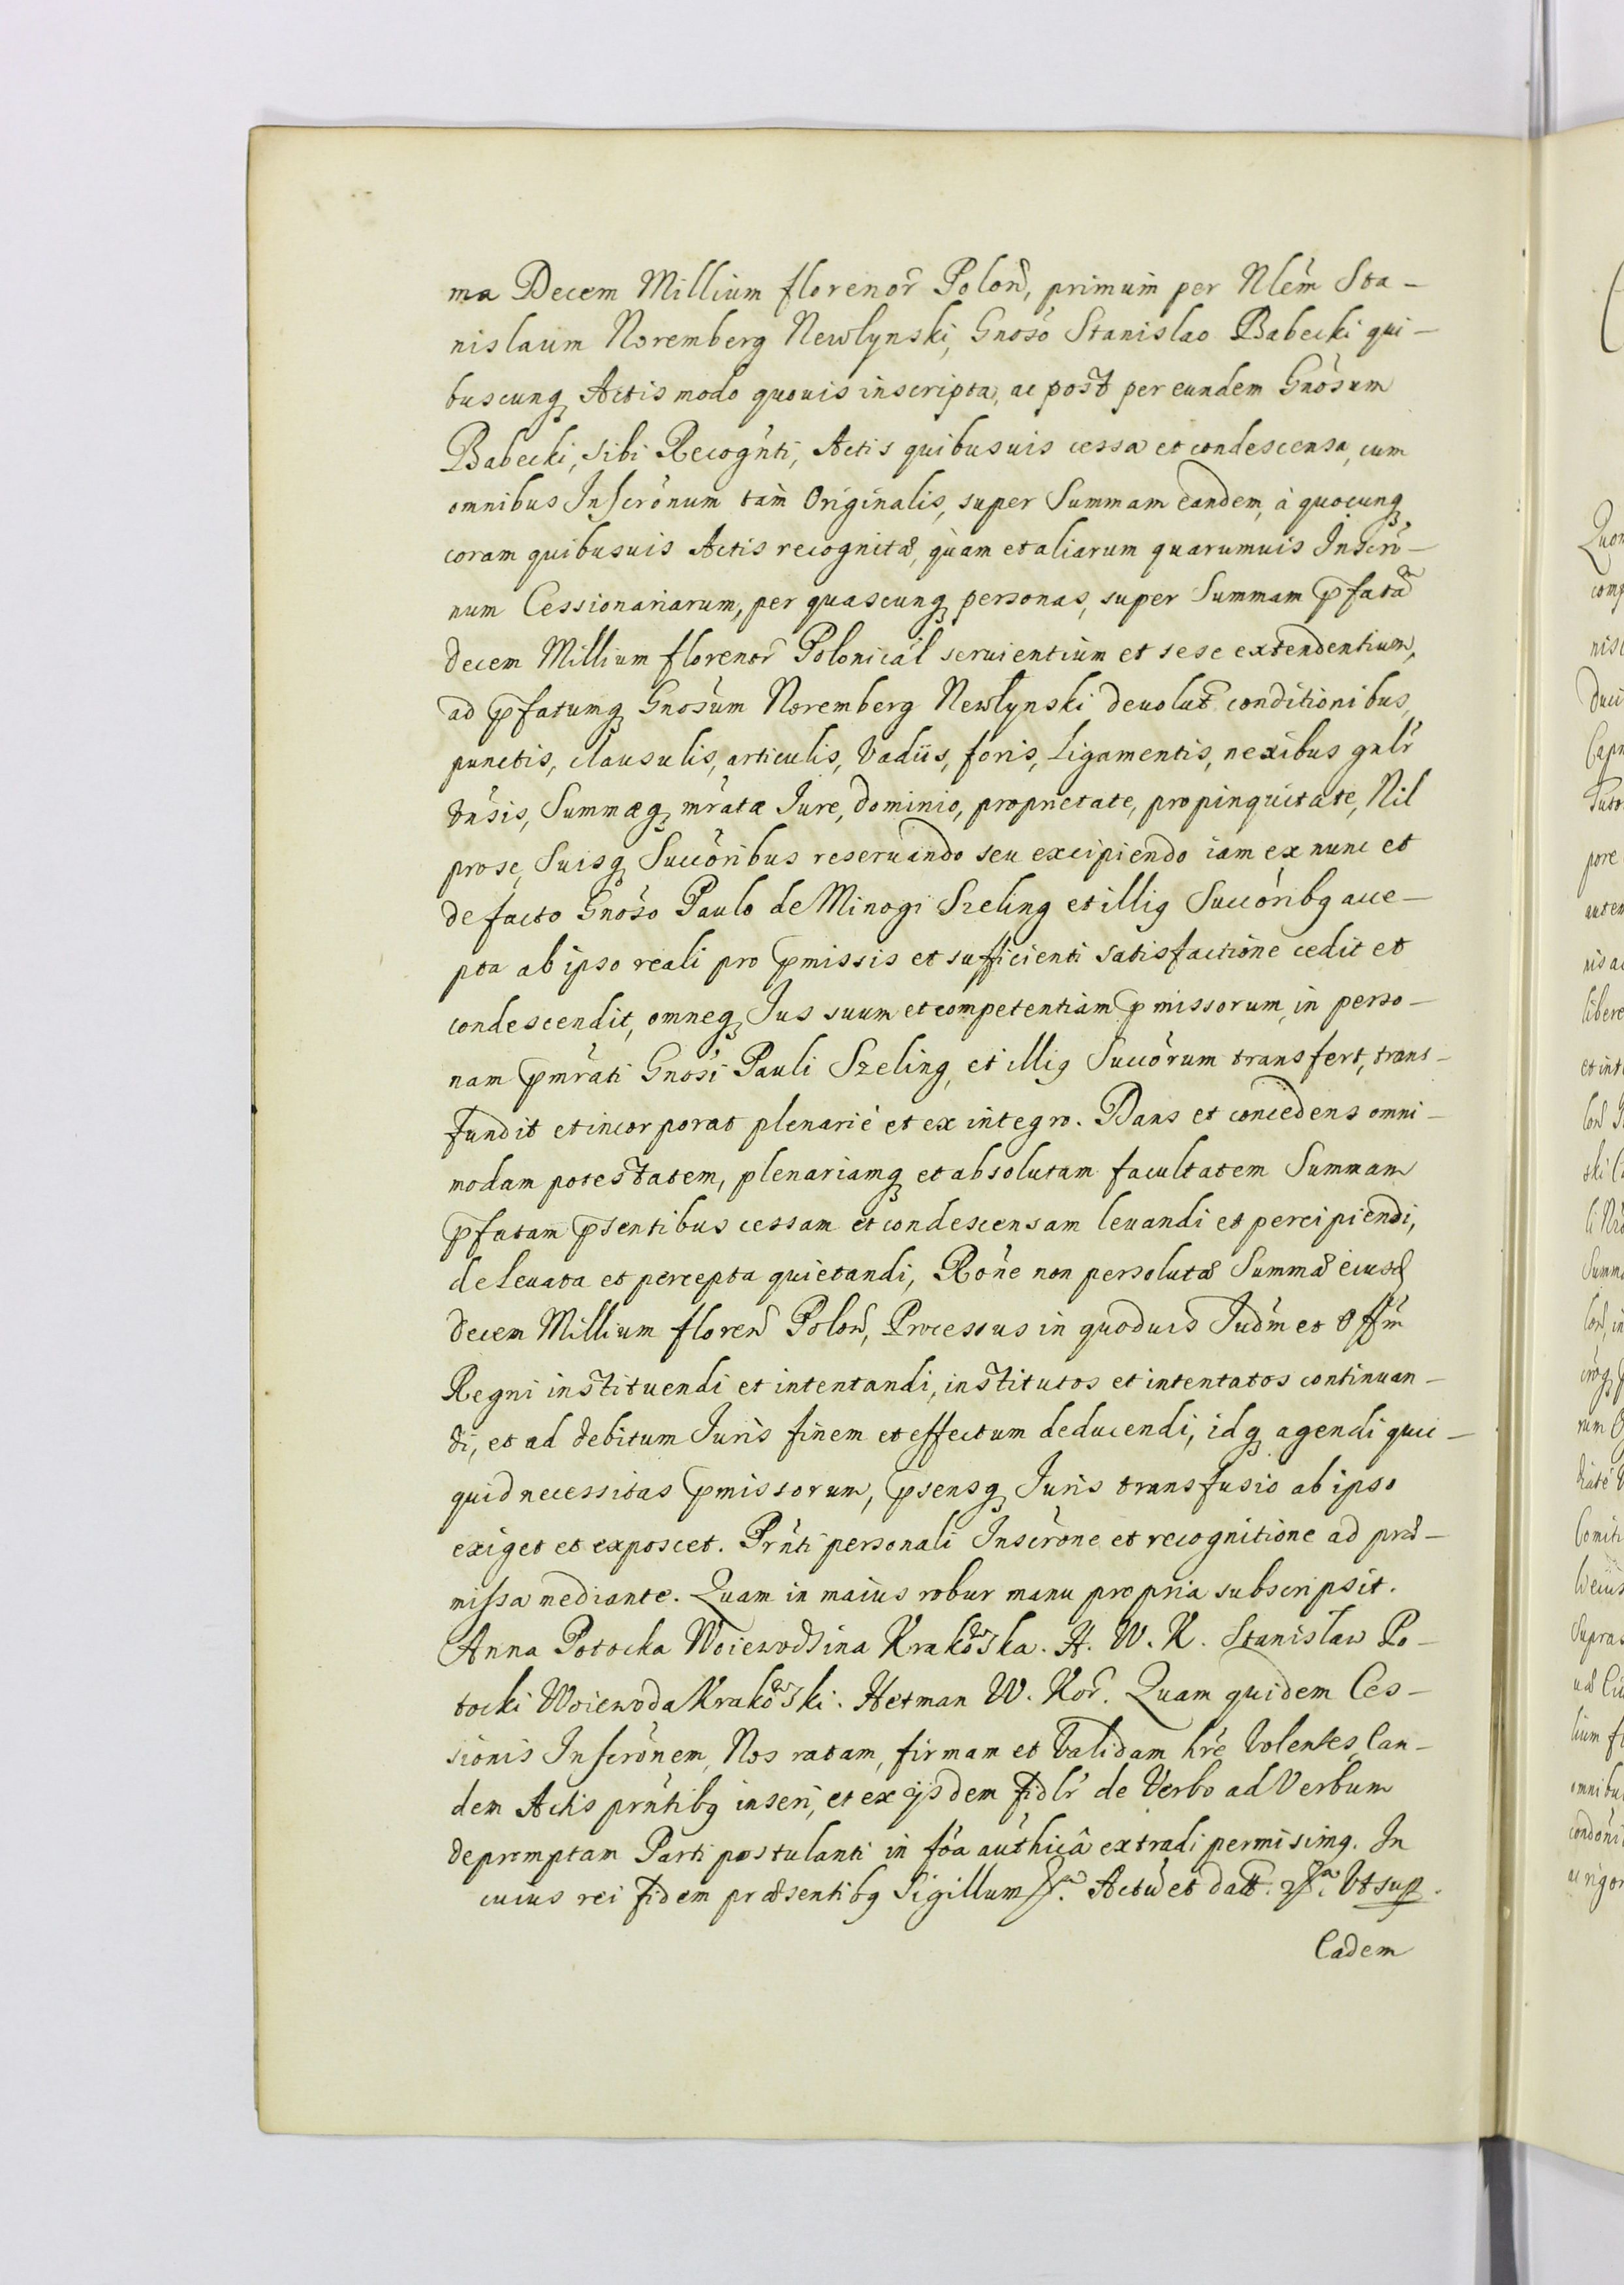 ma Decem Millium florenor̃ Polon̄, primum per Nlém Sta-
nislaum Noremberg Newlynski, Gnoso Stanislao Babecki qui-
buscunq Actis modo quouis inscripta, ac post per eundem Gnosum
Babecki, sibi Recognti, Actis quibusuis cessa et condescensa, cum
omnibus Inscronum tam Originalis, super Summam eandem, à quocunq
coram quibusuis Actis recognitæ, quam et aliarum quarumuis Inscro-
num Cessionariarum, per quascunq personas, super Summam p̄fatā
decem Millium florenor̃ Polonical seruientium et sese extendentium,
ad p̄fatumq Gnosum Noremberg Newlynski deuolut conditionibus,
punctis, clausulis, articulis, Vadiis, foris, Ligamentis, nexibus gnlr
vnsis, Summæq mratæ Iure, dominio, proprietate, propinquitate, Nil
pro se, Suisq Succoribus reseruando seu excipiendo iam ex nunc et
de facto Gnoso Paulo de Minogi Szeling et illiq Succoribq acce-
pta ab ipso reali pro p̄missis et sufficienti satisfactione cedit et
condescendit, omneq Ius suum et competentiam p̄missorum, in perso-
nam p̄mrati Gnosi Pauli Szeling, et illiq Succorum transfert, trans-
fundit et incorporat plenarie et ex integro. Dans et concedens omni-
modam potestatem, plenariamq et absolutam facultatem Summam
p̄fatam p̄sentibus cessam et condescensam leuandi et percipiendi,
de leuata et percepta quietandi, Rone non persolutæ Summæ eiusd
decem Millium floren̄ Polon̄, Processus in quoduis Judm et Offm
Regni instituendi et intentandi, institutos et intentatos continuan-
di, et ad debitum Iuris finem et effectum deducendi, idq agendi quic-
quid necessitas p̄missorum, p̄sensq Iuris transfusio ab ipso
exiget et exposcet. Prnti personali Inscrone et recognitione ad præ-
missa mediante. Quam in maius robur manu propria subscripsit.
Anna Potocka Woiewodzina Krakowska. H. W. K. Stanisław Po-
tocki Woiewoda Krakowski. Hetman W. Kor. Quam quidem Ces-
sionis Inscronem, Nos ratam, firmam et Validam hre Volentes, Ean-
dem Actis prntibq inseri, et ex ijsdem fidlr de Verbo ad Verbum
depromptam Parti postulanti in foa authica extradi permisimq. In
cuius rei fidem præsentibq Sigillum Actū et datt. Vt sup.
Eadem